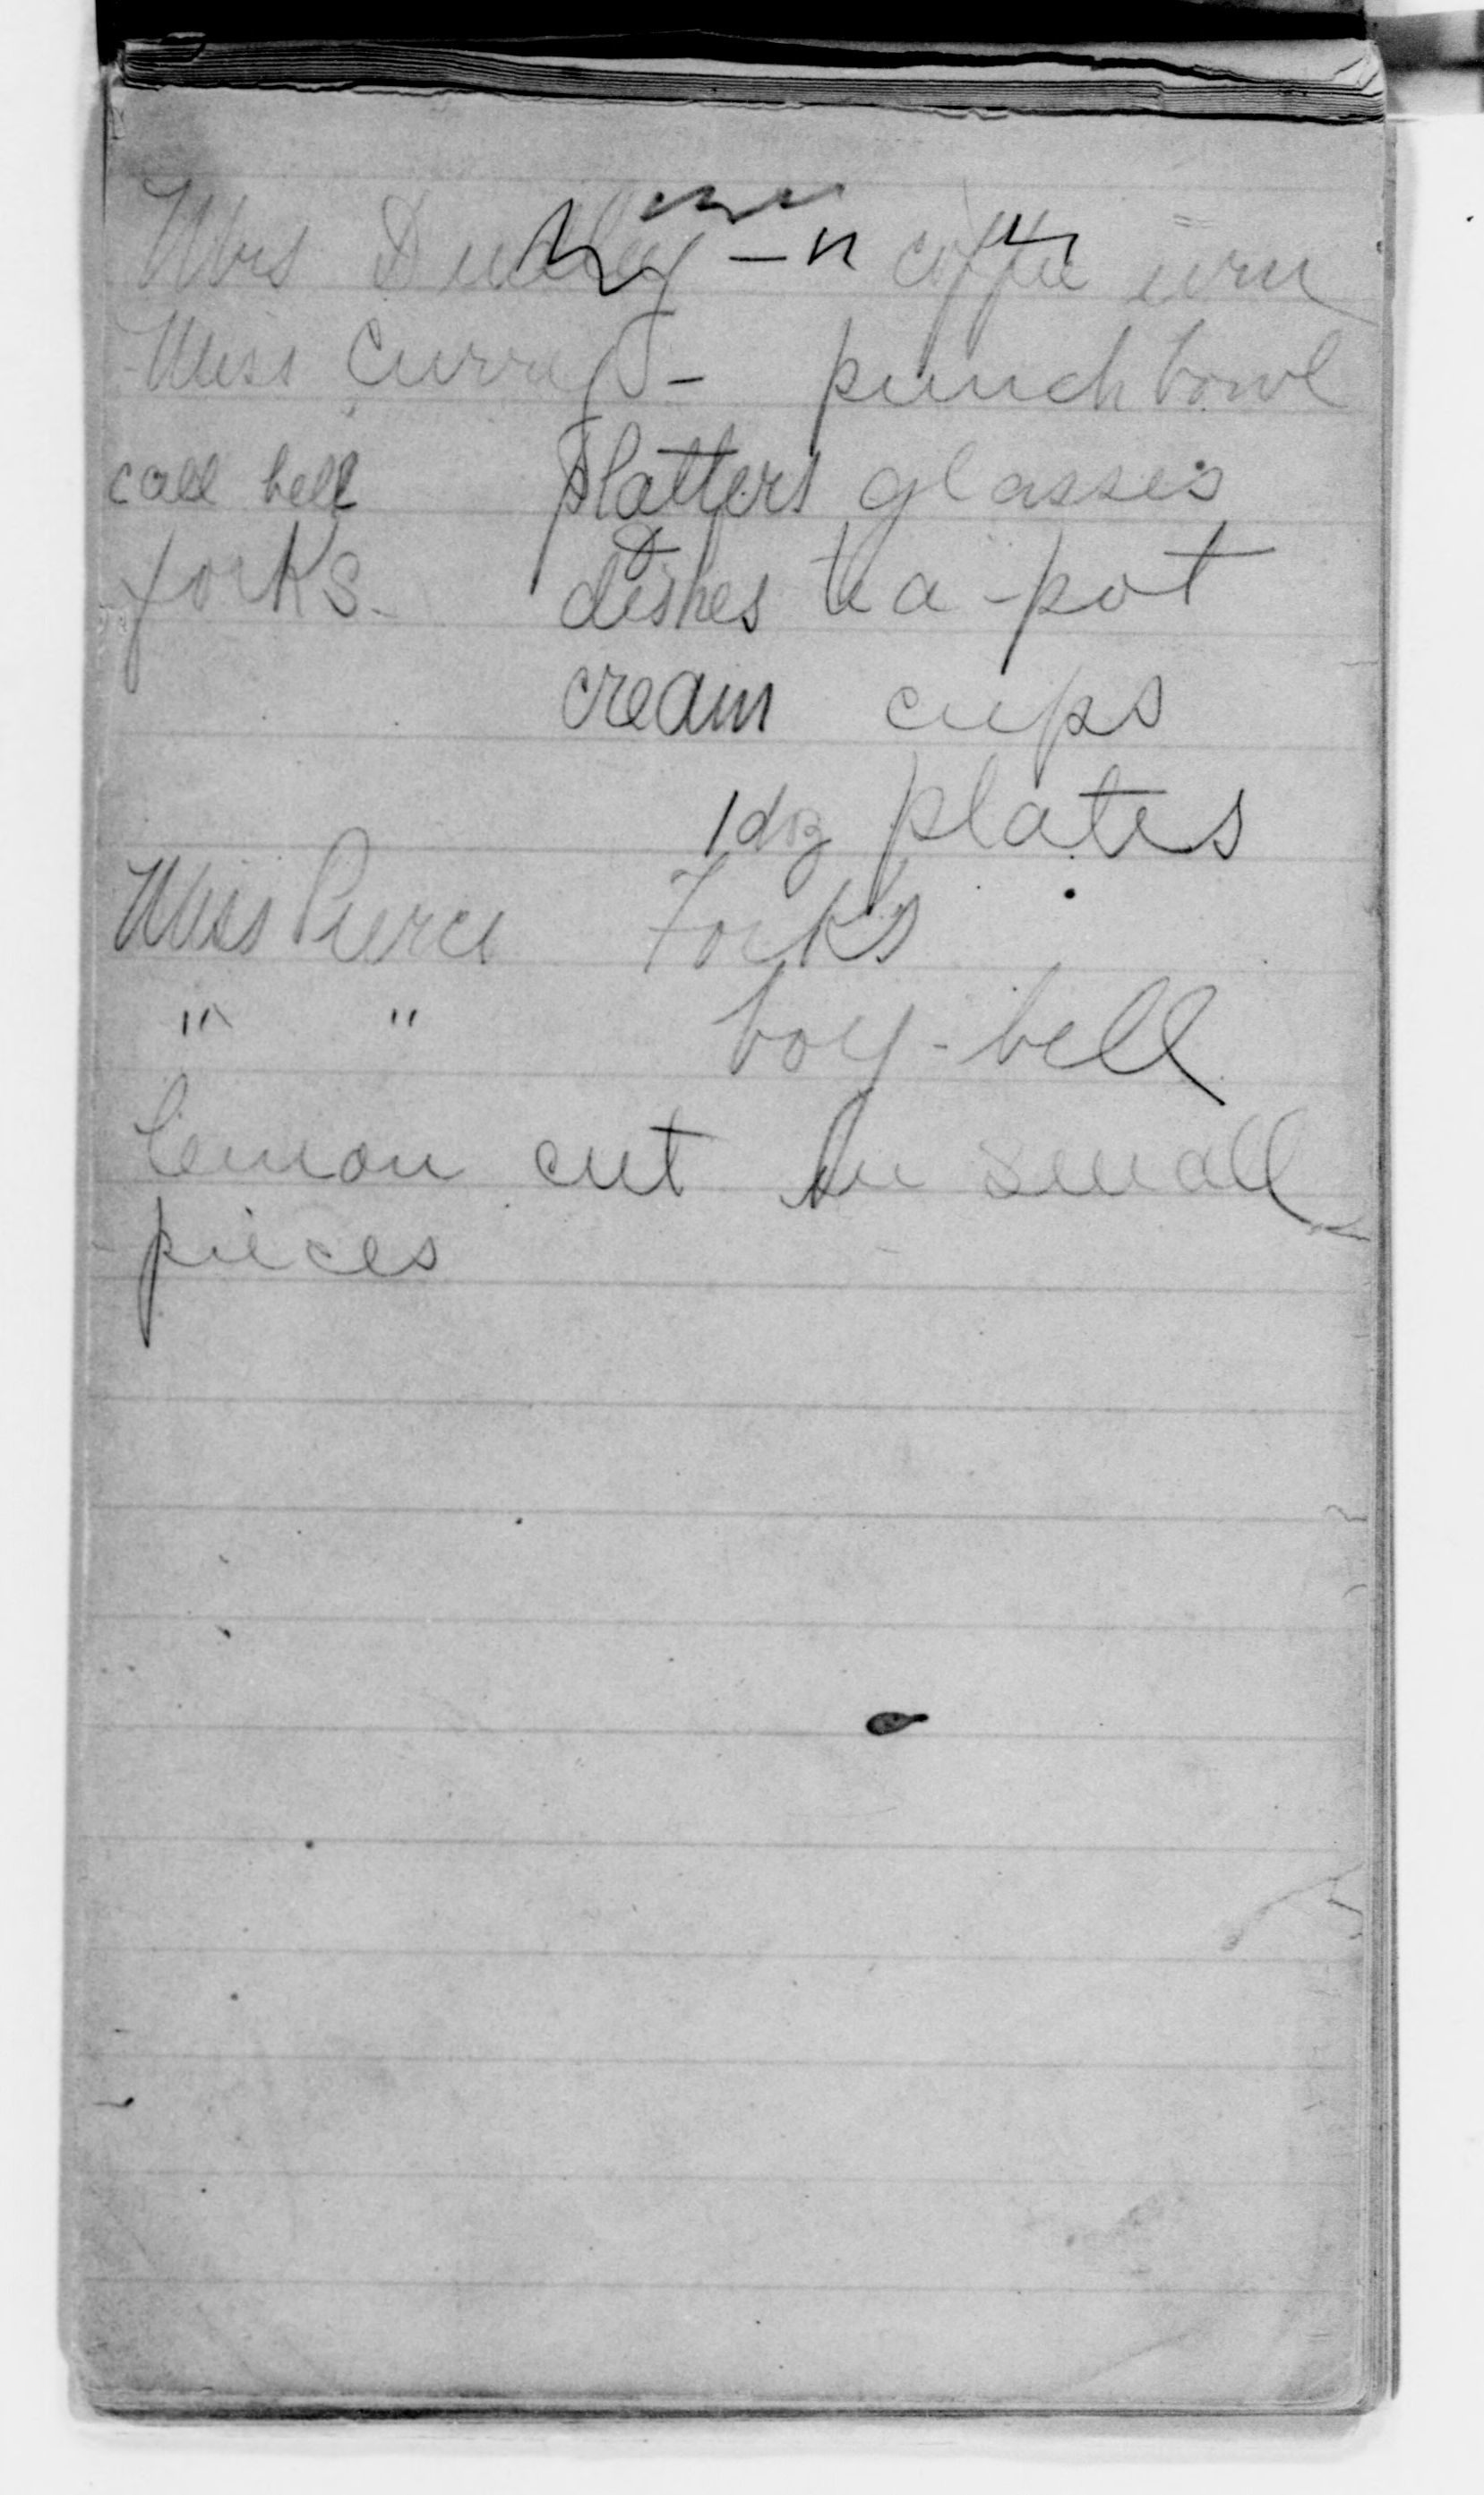 Mrs Dudley - coffee urn
Miss Curry - punch bowl
call bell platters glasses
forks - dishes tea-pot
cream cups
1 doz plates
Miss Pierce Forks
" " boy-bell
lemon cut in small
pieces